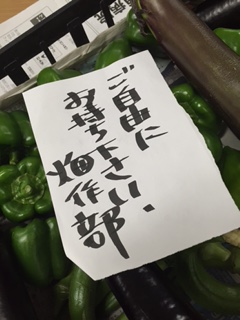 ご自由に
お持ち下さい、
畑作部